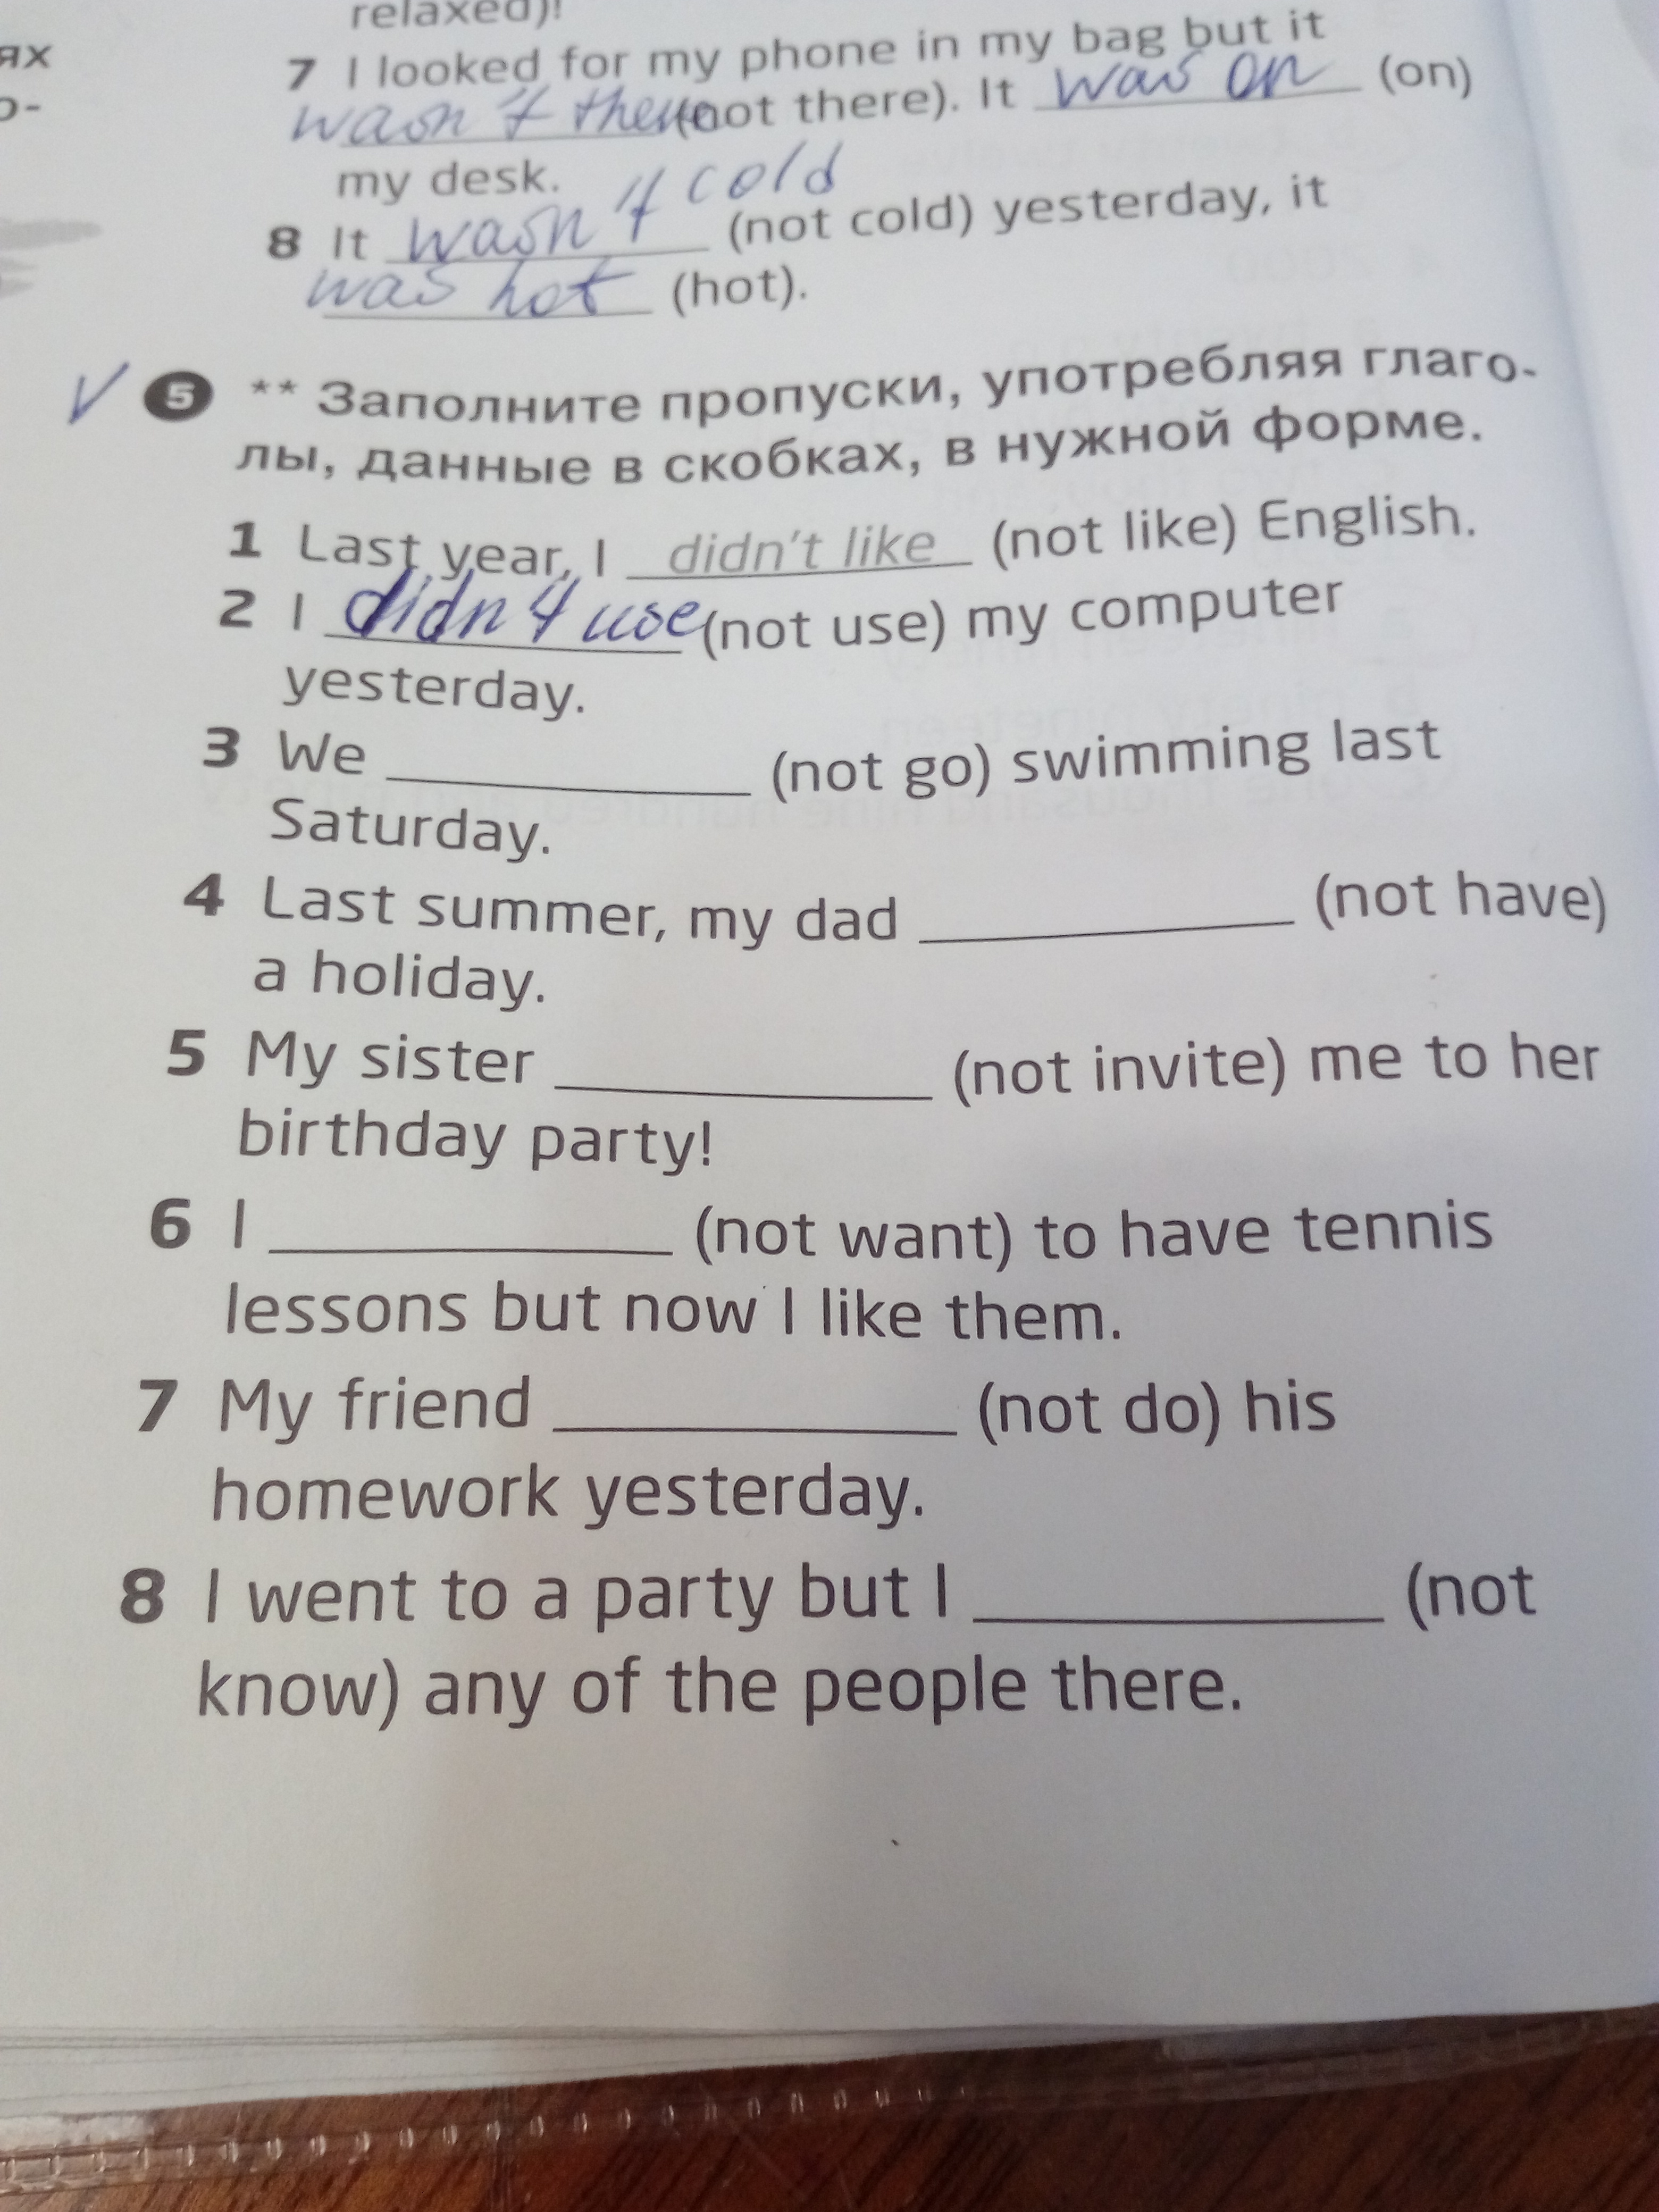 ях
о-
relaxed)!
7 I looked for my phone in my bag but it
wasn't there (not there). It was on (on)
my desk.
8 It wasn't cold (not cold) yesterday, it
was hot (hot).
5 ** Заполните пропуски, употребляя глаго-
лы, данные в скобках, в нужной форме.
1 Last year, I didn't like (not like) English.
2 I didn't use (not use) my computer
yesterday.
3 We ____________ (not go) swimming last
Saturday.
4 Last summer, my dad ____________ (not have)
a holiday.
5 My sister ____________ (not invite) me to her
birthday party!
6 I ____________ (not want) to have tennis
lessons but now I like them.
7 My friend ____________ (not do) his
homework yesterday.
8 I went to a party but I ____________ (not
know) any of the people there.